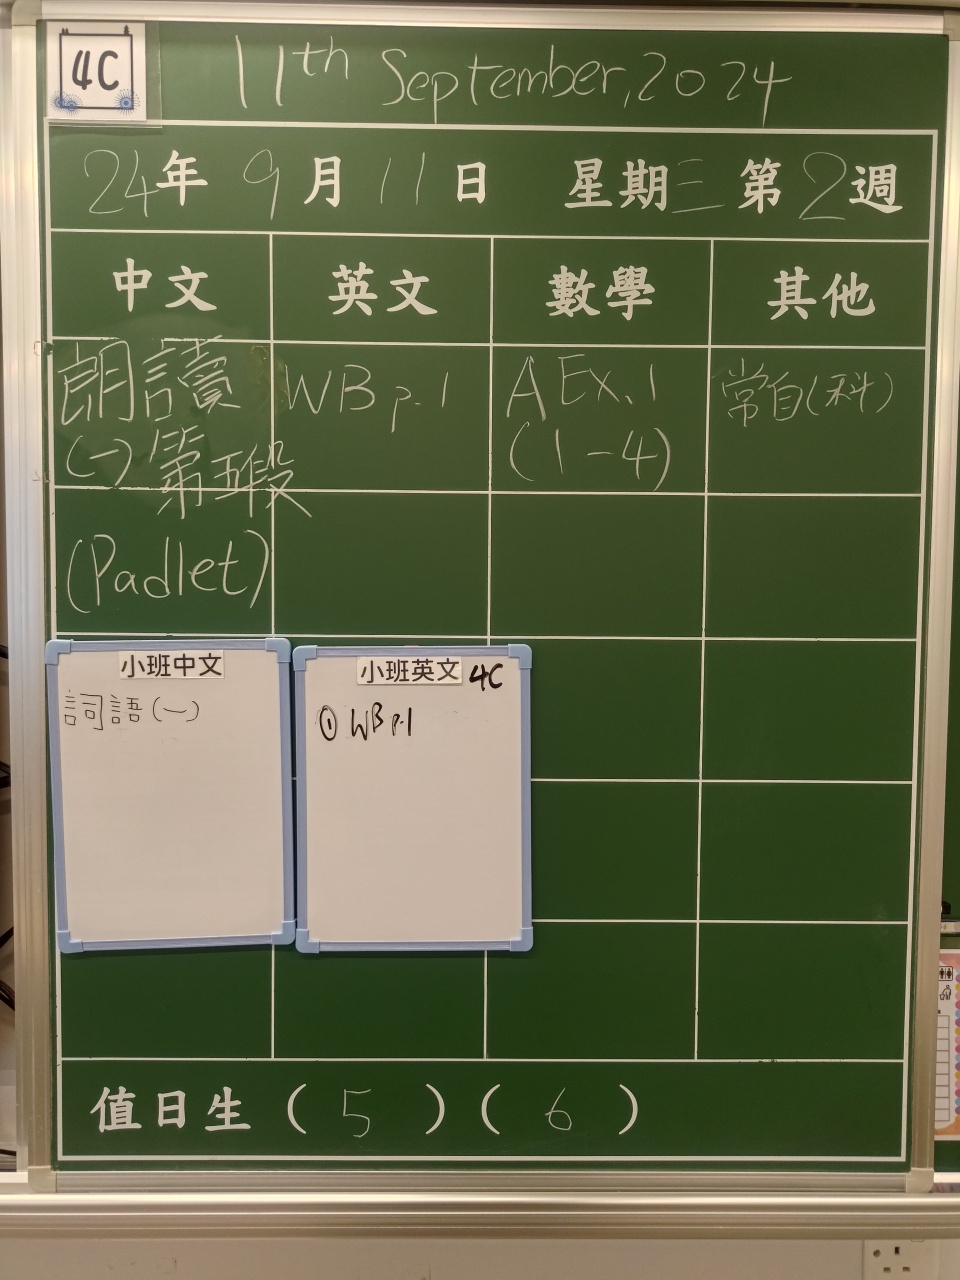 4C
11th September, 2024
24年 9月 11日 星期三 第2週
中文 英文 數學 其他
朗讀 WB p.1 A Ex.1 常自(科)
(一)第五段 (1-4)
(Padlet)
小班中文
詞語(一)
小班英文 4C
① WB p.1
值日生 ( 5 ) ( 6 )